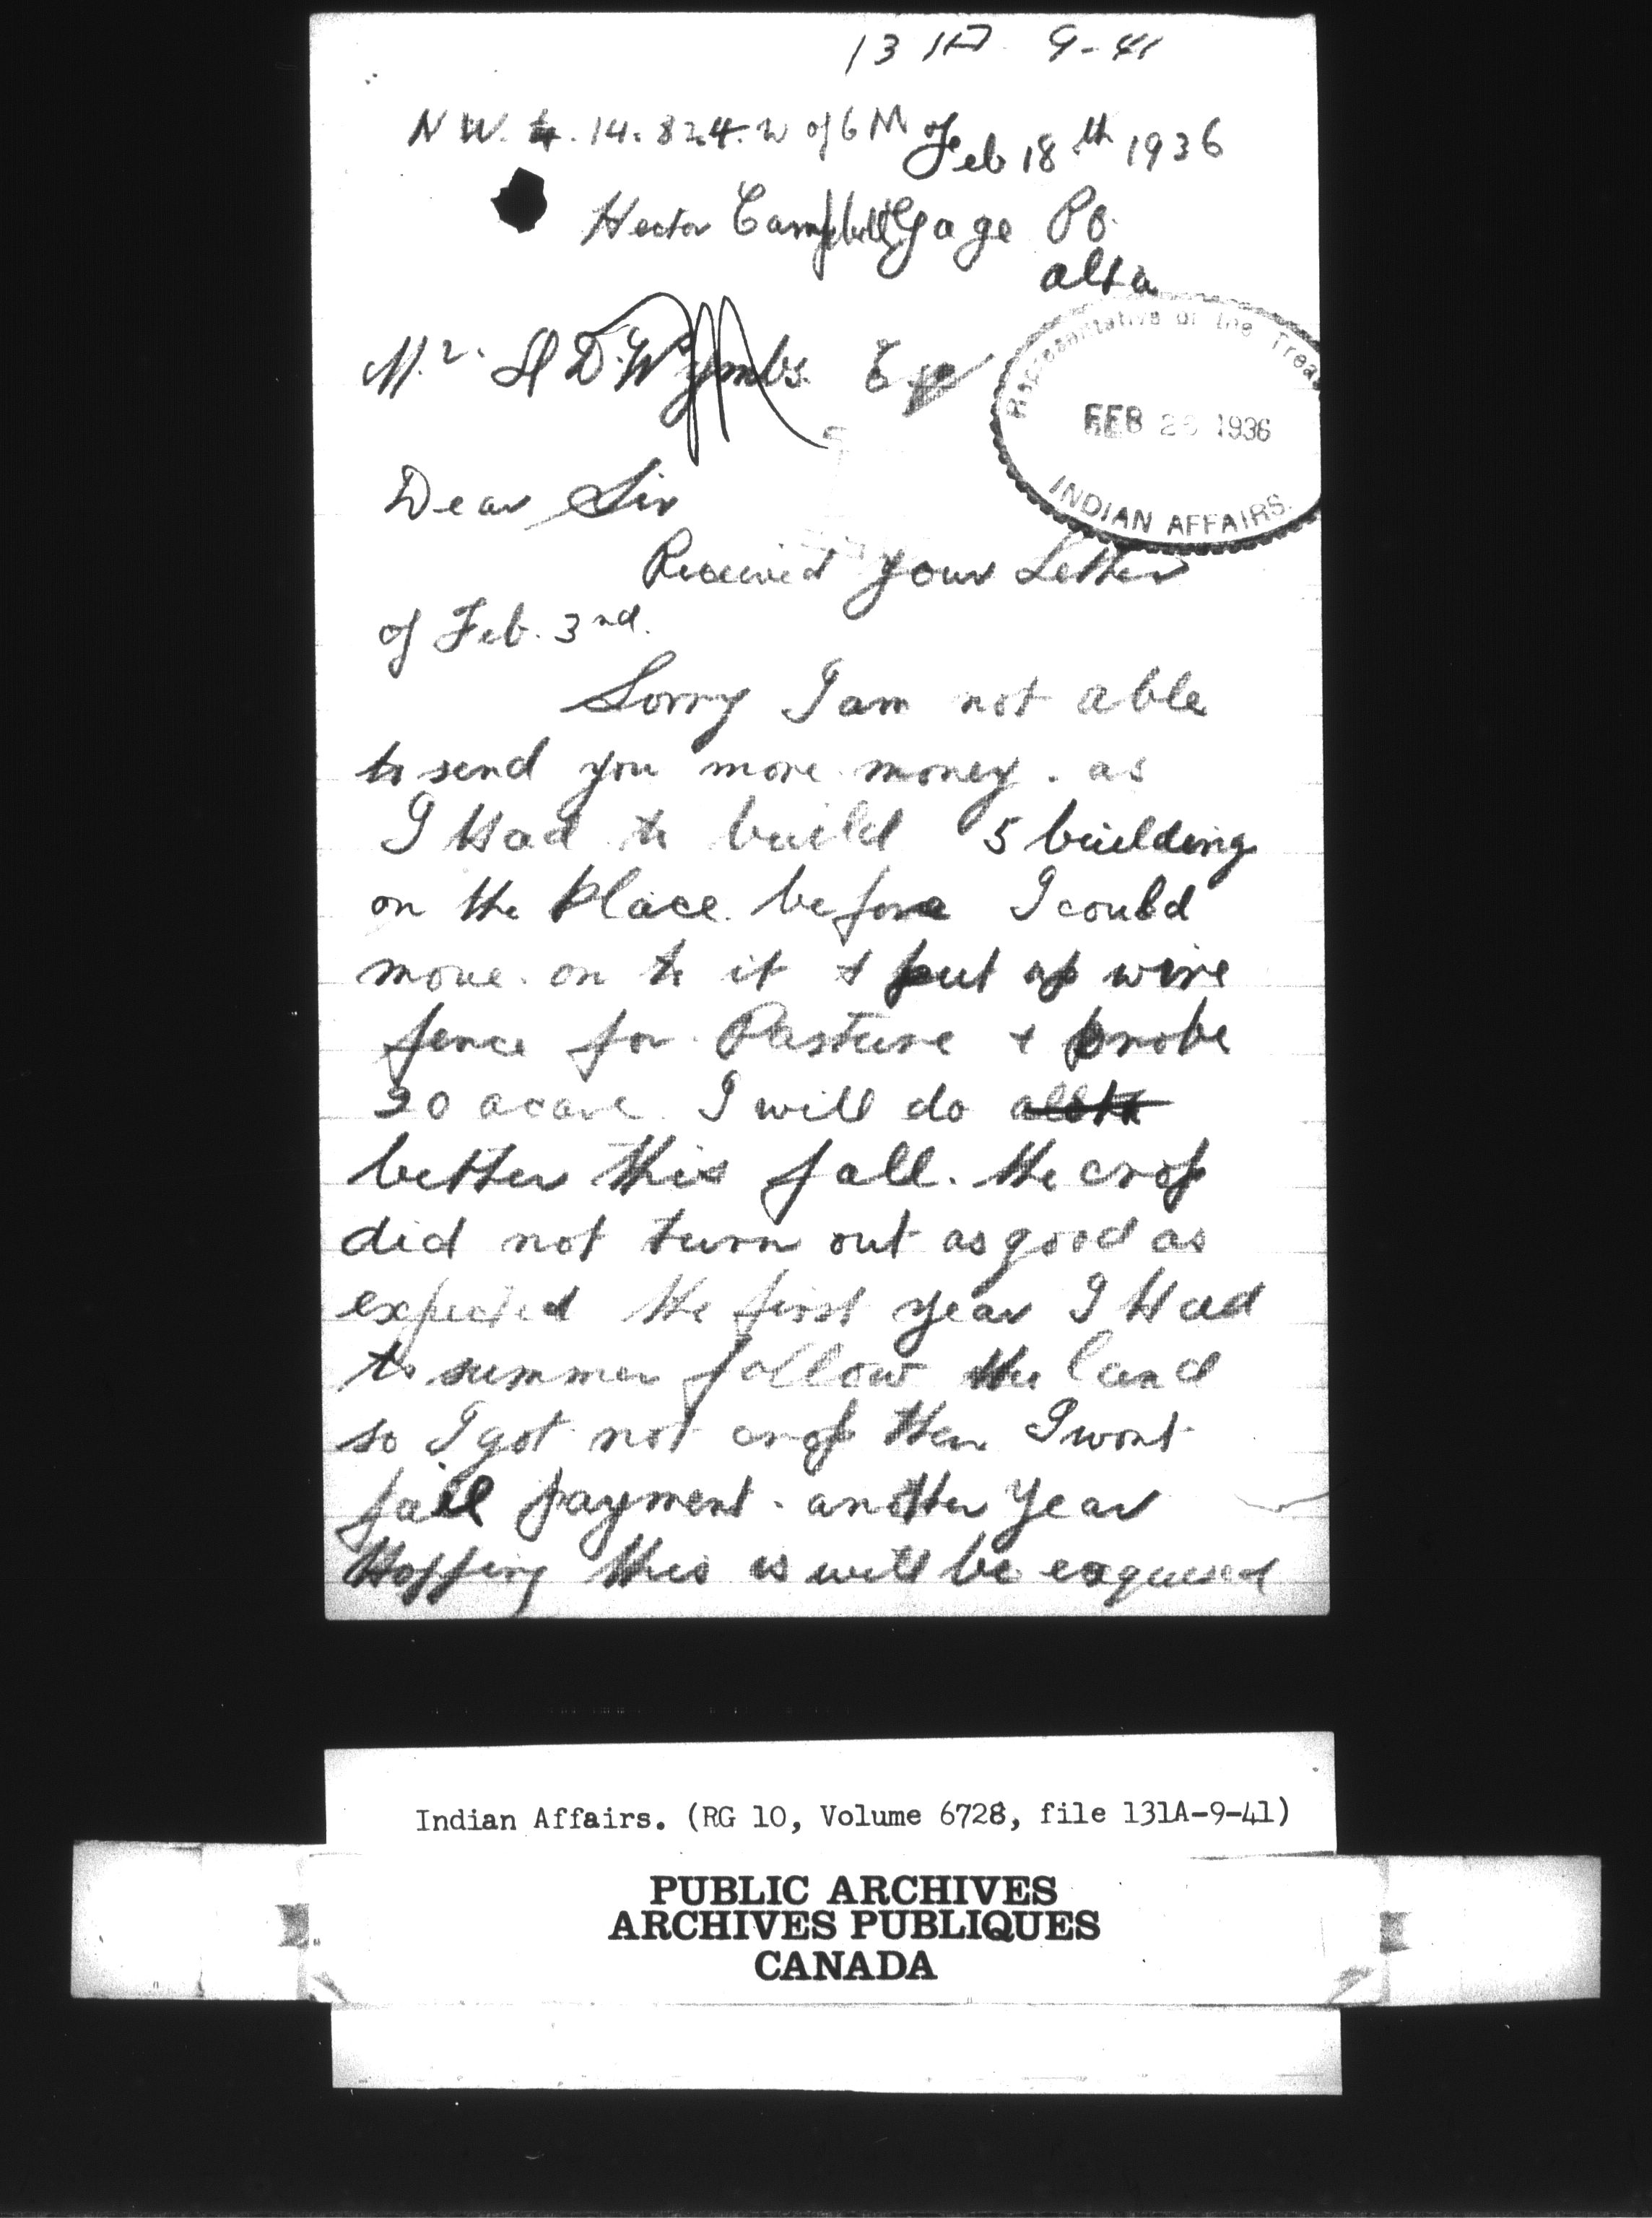 131A 9-41
N W. 4. 14. 82.4. W of 6 M of Feb 18th 1936
Hector Campbell Gage PO.
alta
Mr. D. Wymbs. Esq
Representative of the Treas
FEB 26 1936
INDIAN AFFAIRS.
Dear Sir
Received your Letter
of Feb. 3nd.
Sorry I am not able
to send you more money. as
I Had to build 5 building
on the Place before I could
move on to it + put up wire
fence for Pasture + broke
20 acare I will do
better this fall. the crop
did not turn out as good as
expected the first year I Had
to summer follow the land
so I got not crop then I wont
fail payment. another year
Hopping this is will be exqused
Indian Affairs. (RG 10, Volume 6728, file 131A-9-41)
PUBLIC ARCHIVES
ARCHIVES PUBLIQUES
CANADA